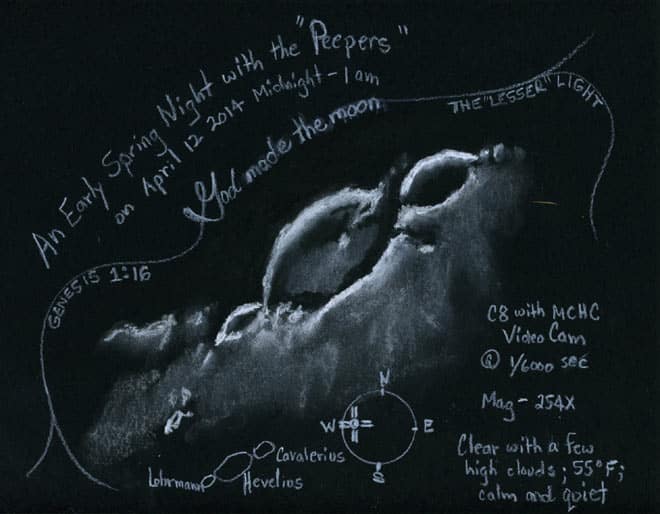 An Early Spring Night with the "Peepers"
on April 12 2014 Midnight - 1 am
God made the moon
THE "LESSER" LIGHT
GENESIS 1:16
C8 with MCHC
Video Cam
@ 1/6000 sec
Mag - 254X
Clear with a few
high clouds; 55°F;
calm and quiet
N
W
E
S
Cavalerius
Hevelius
Lohrmann